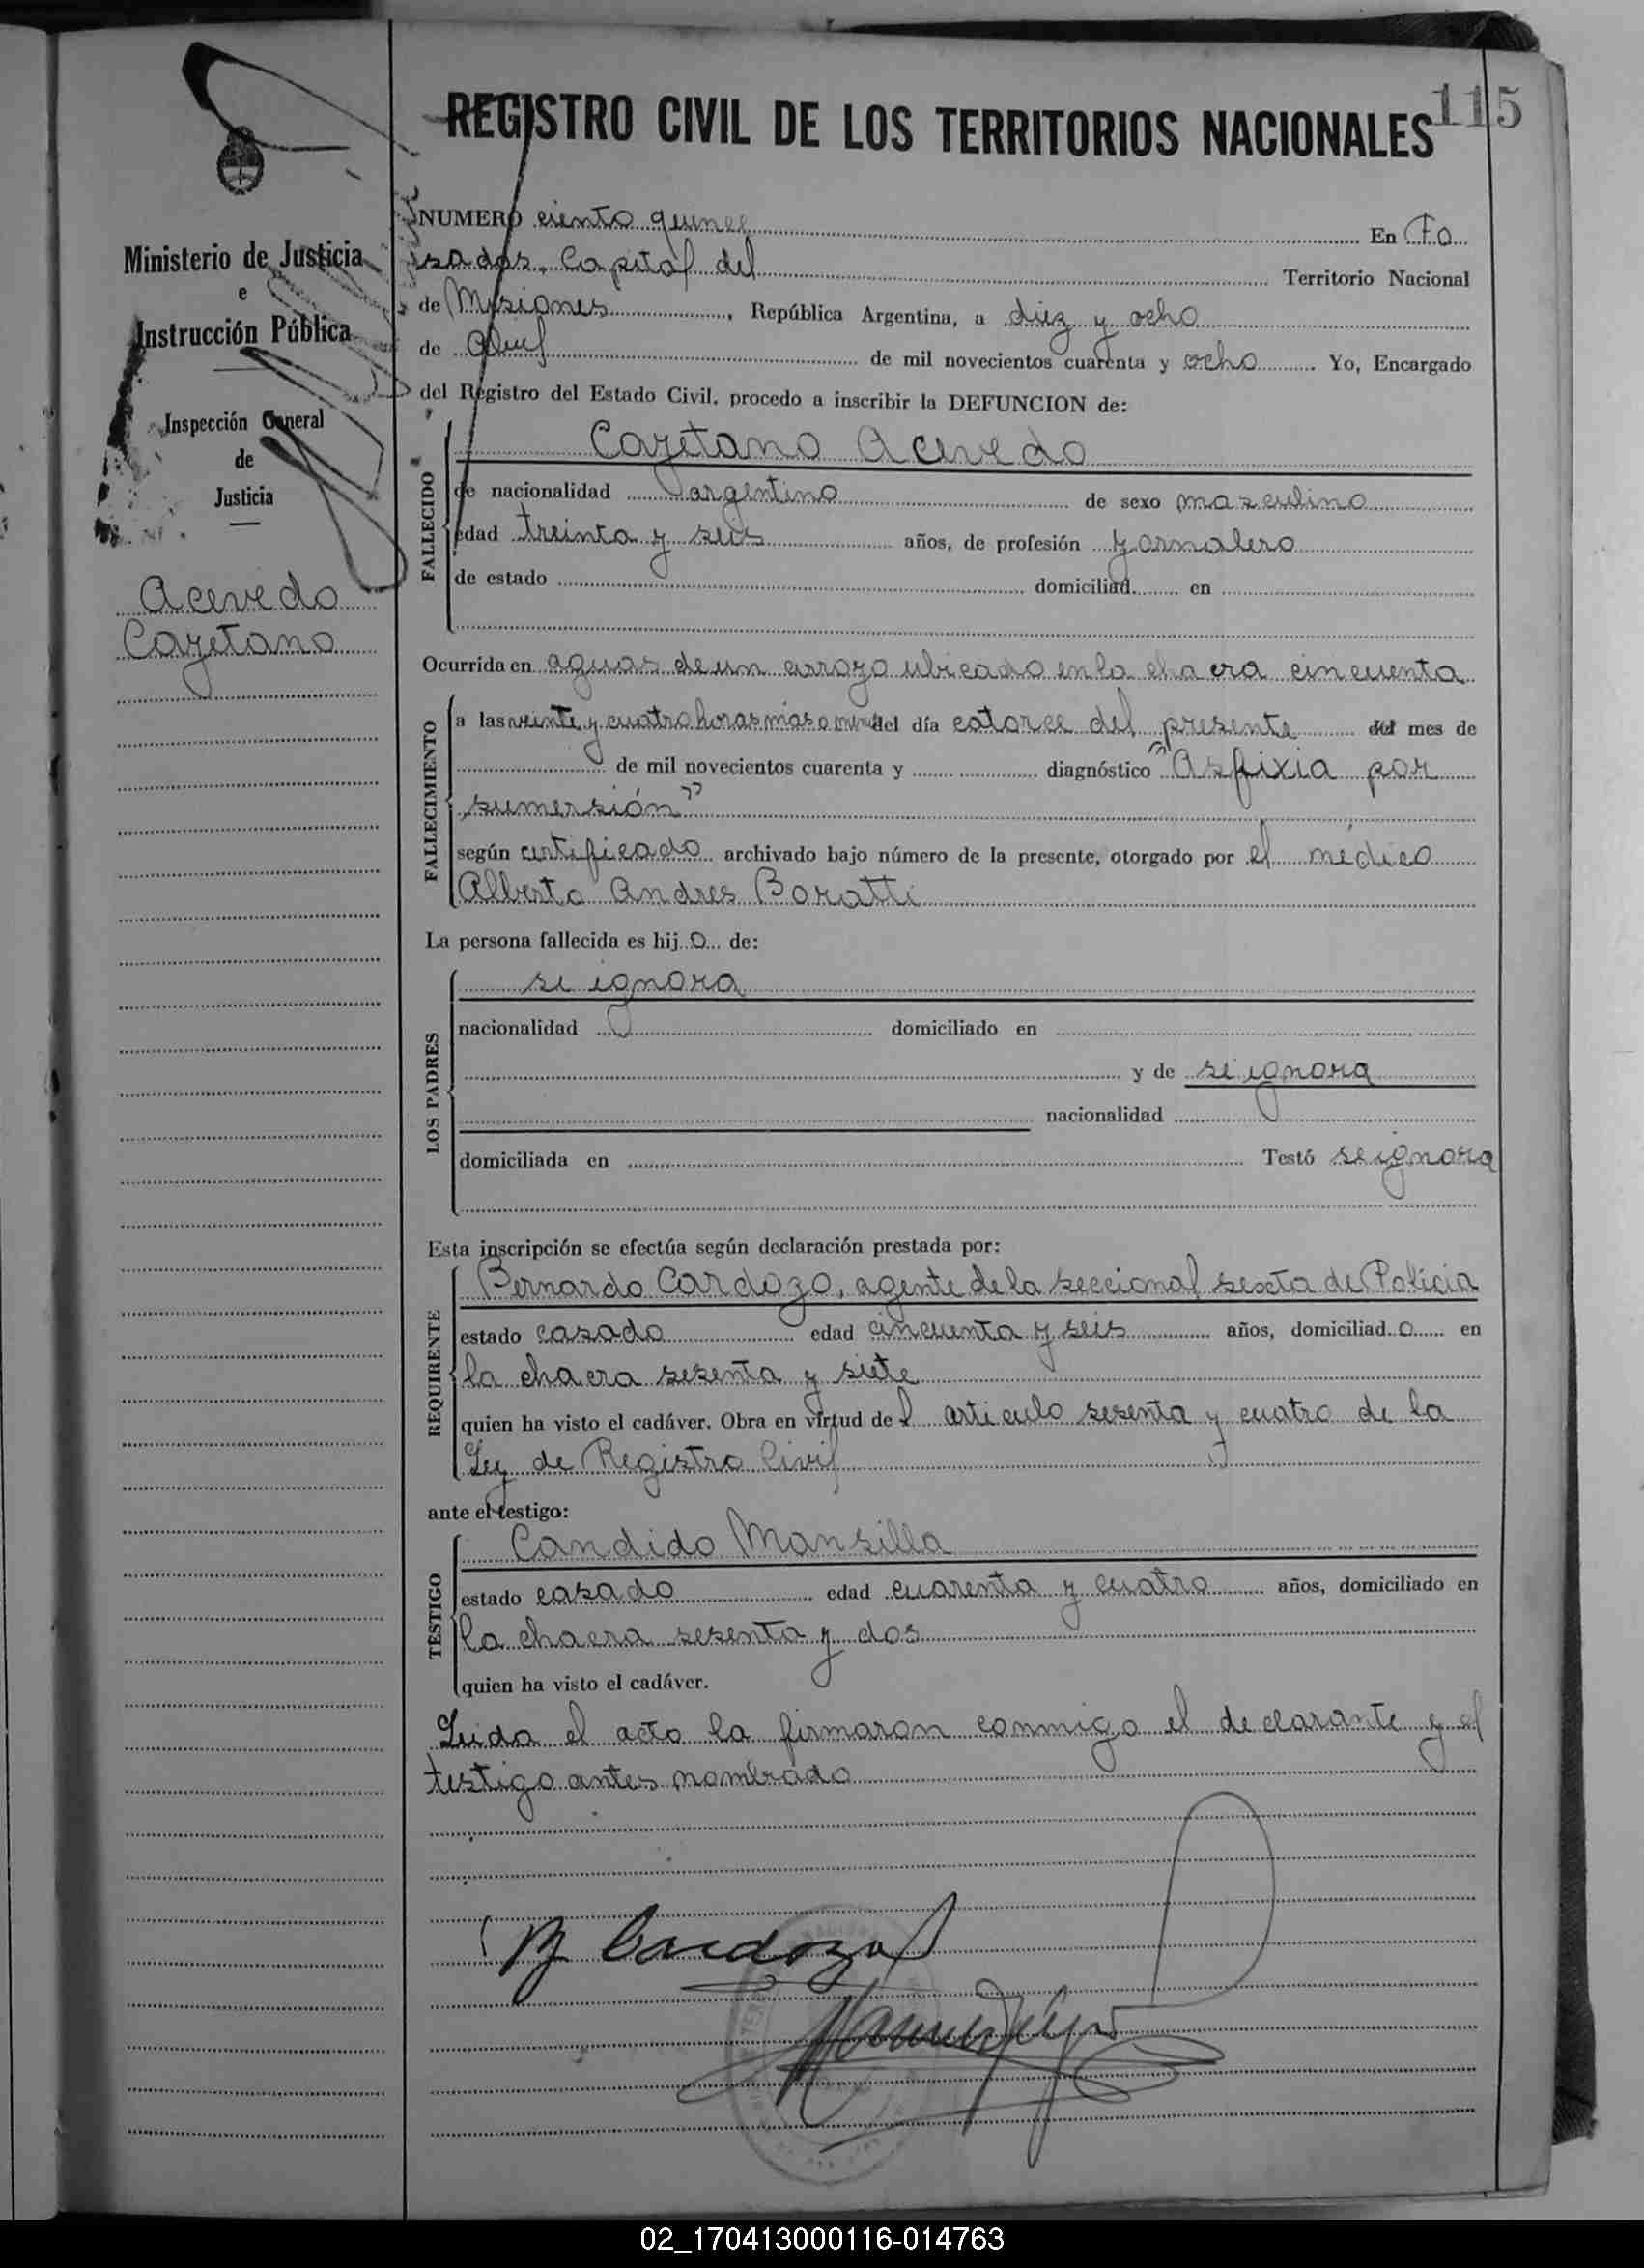 115
REGISTRO CIVIL DE LOS TERRITORIOS NACIONALES
Ministerio de Justicia
e
Instrucción Pública
Inspección General
de
Justicia
Acevedo
Cayetano
NUMERO ciento quince En Po
sadas, Capital del Territorio Nacional
de Misiones, República Argentina, a diez y ocho
de Abril de mil novecientos cuarenta y ocho Yo, Encargado
del Registro del Estado Civil, procedo a inscribir la DEFUNCION de:
FALLECIDO
Cayetano Acevedo
de nacionalidad argentino de sexo masculino
edad treinta y seis años, de profesión jornalero
de estado domiciliad en
Ocurrida en aguas de un arroyo ubicado en la chacra cincuenta
FALLECIMIENTO
a las veinte y cuatro horas mas o menos del día catorce del presente del mes de
de mil novecientos cuarenta y diagnóstico "Asfixia por
sumersión"
según certificado archivado bajo número de la presente, otorgado por el médico
Alberto Andres Boratti
La persona fallecida es hij o de:
LOS PADRES
se ignora
nacionalidad domiciliado en
y de se ignora
nacionalidad
domiciliada en Testó se ignora
Esta inscripción se efectúa según declaración prestada por:
REQUIRENTE
Bernardo Cardozo, agente de la seccional sexta de Policia
estado casado edad cincuenta y seis años, domiciliad o en
la chacra sesenta y siete
quien ha visto el cadáver. Obra en virtud de l articulo sesenta y cuatro de la
Ley de Registro Civil
ante el testigo:
TESTIGO
Candido Mansilla
estado casado edad cuarenta y cuatro años, domiciliado en
la chacra sesenta y dos
quien ha visto el cadáver.
Leida el acto la firmaron conmigo el declarante y el
testigo antes nombrado
B Cardozo
02_170413000116-014763